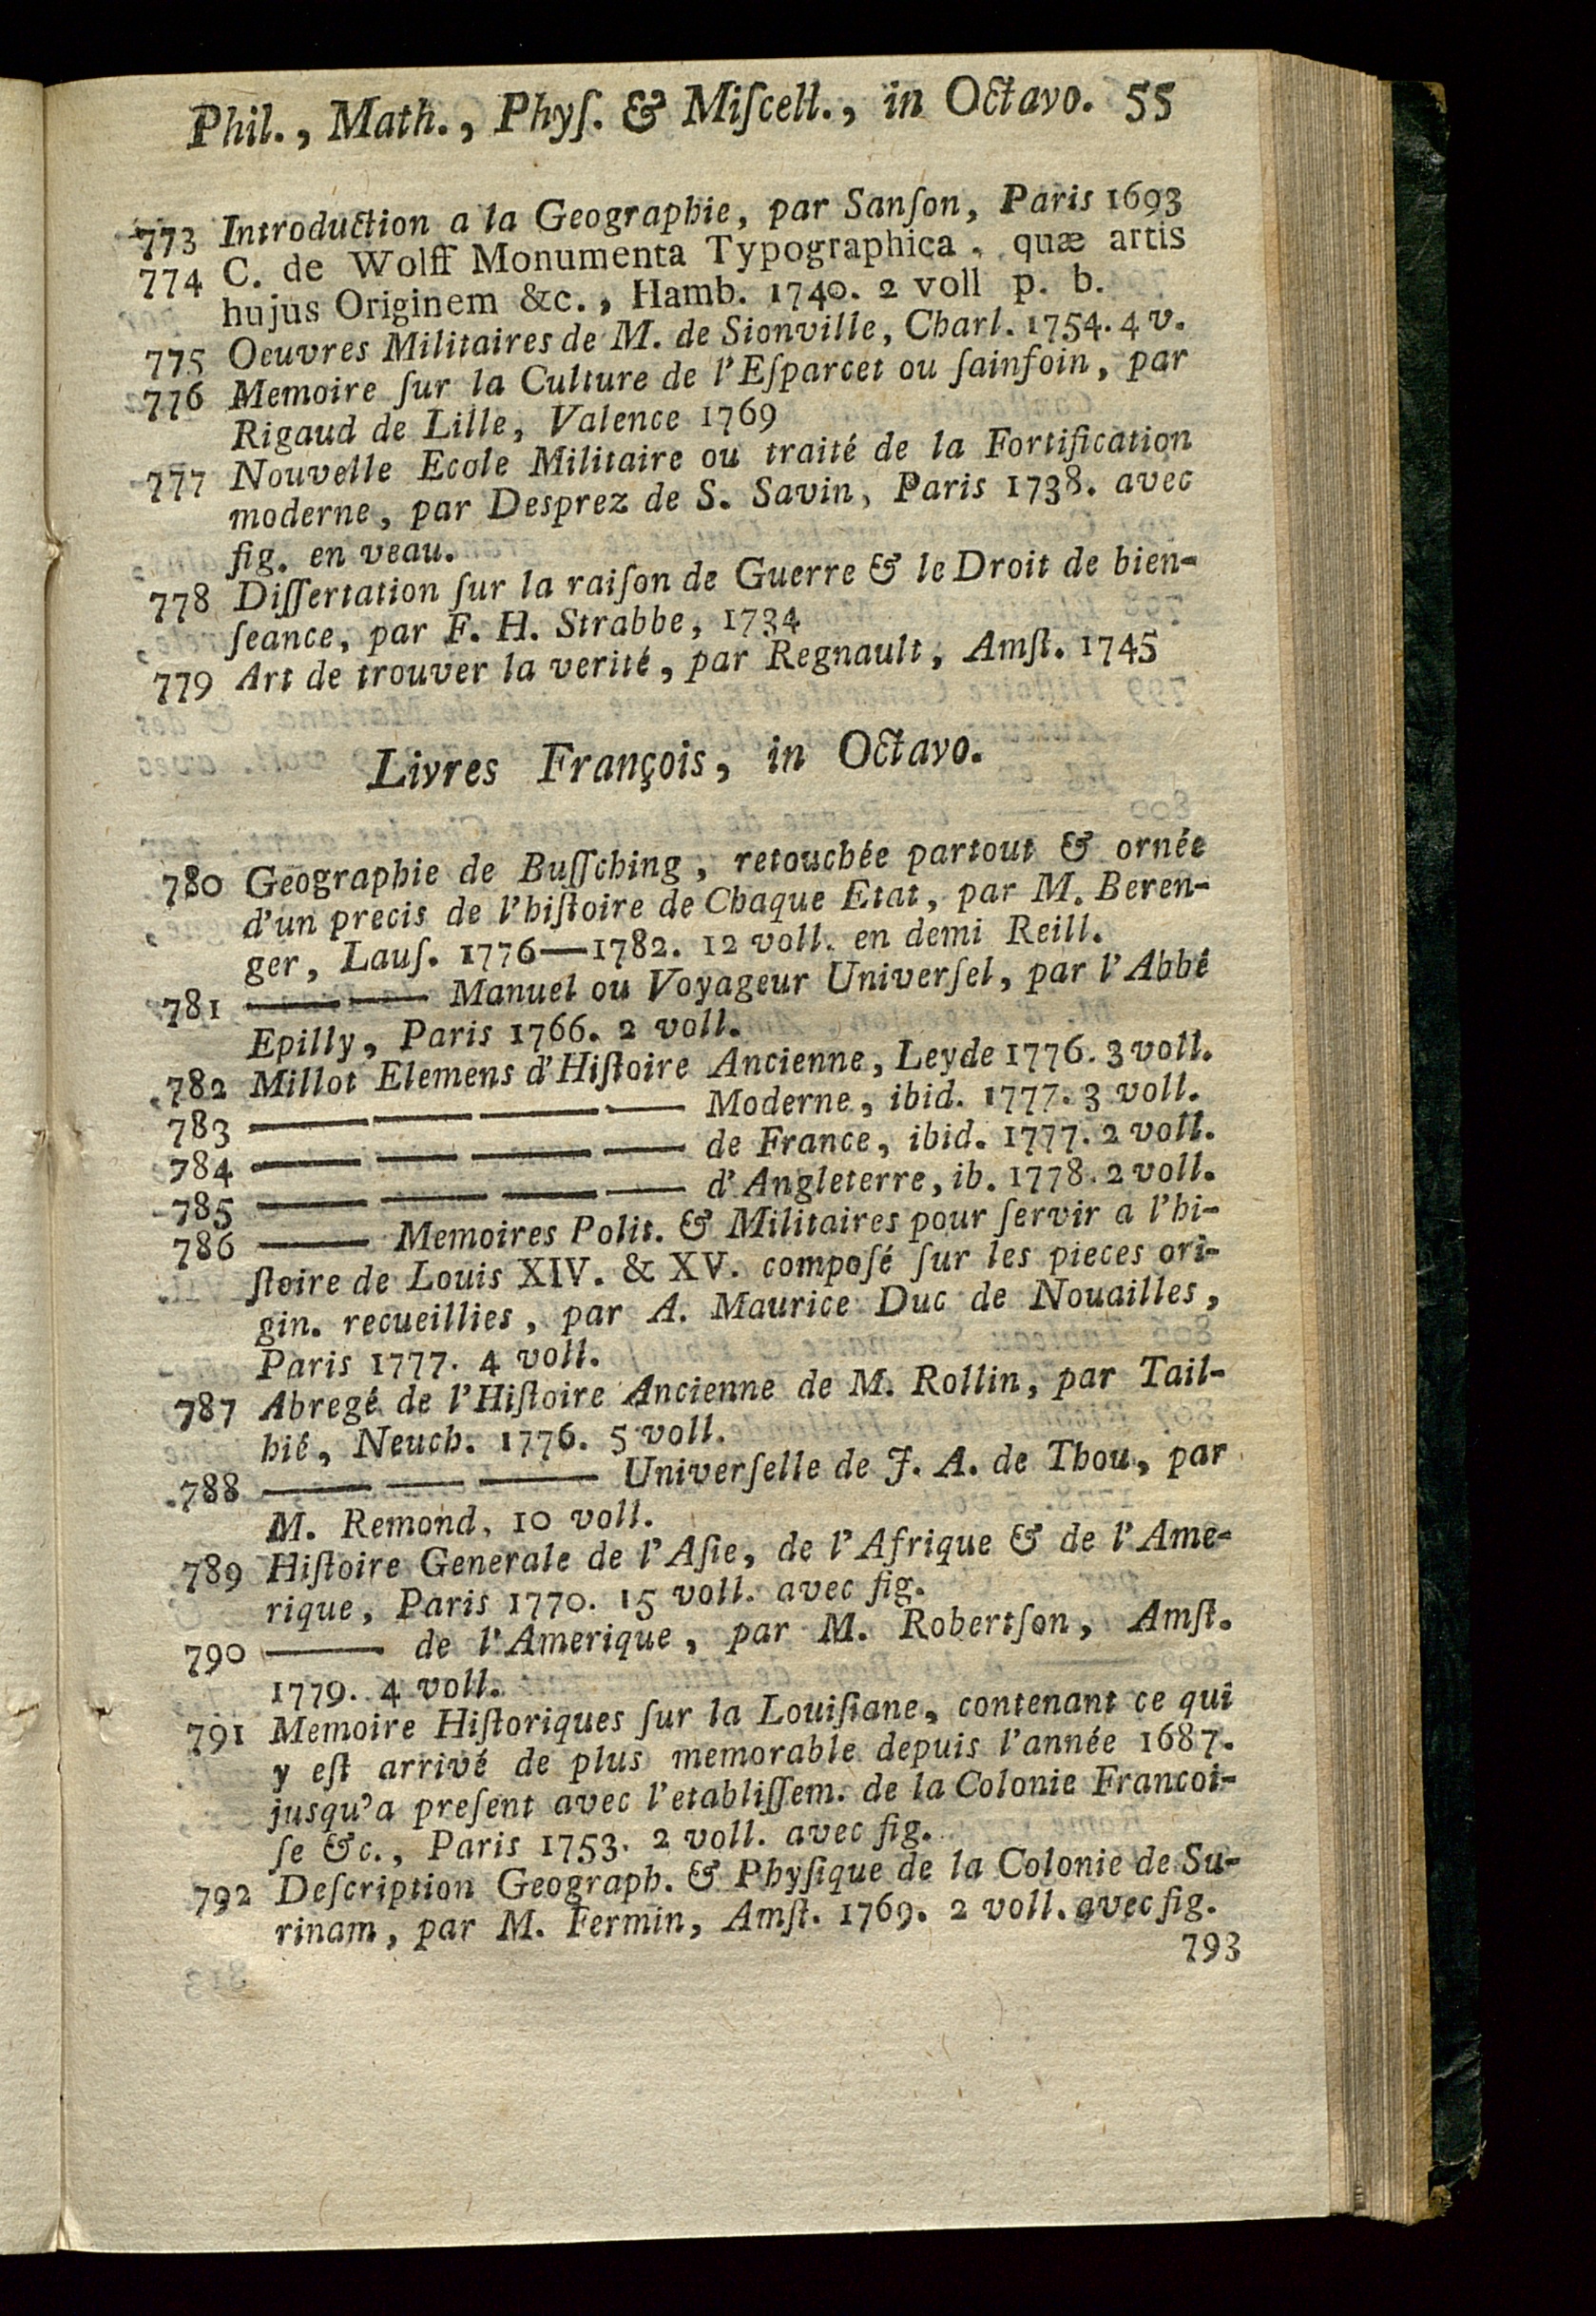 Phil., Math., Phyſ. & Miſcell., in Octavo. 55
773 Introduction a la Geographie, par Sanſon, Paris 1693
774 C. de Wolff Monumenta Typographica, quæ artis
hujus Originem &c., Hamb. 1740. 2 voll p. b.
775 Oeuvres Militaires de M. de Sionville, Charl. 1754. 4 v.
776 Memoire ſur la Culture de l'Eſparcet ou ſainfoin, par
Rigaud de Lille, Valence 1769
777 Nouvelle Ecole Militaire ou traité de la Fortification
moderne, par Desprez de S. Savin, Paris 1738. avec
fig. en veau.
778 Diſſertation ſur la raiſon de Guerre & le Droit de bien-
ſeance, par F. H. Strabbe, 1734
779 Art de trouver la verité, par Regnault, Amſt. 1745
Livres François, in Octavo.
780 Geographie de Buſſching, retouchée partout & ornée
d'un precis de l'hiſtoire de Chaque Etat, par M. Beren-
ger, Lauſ. 1776—1782. 12 voll. en demi Reill.
781 —— —— Manuel ou Voyageur Univerſel, par l'Abbé
Epilly, Paris 1766. 2 voll.
782 Millot Elemens d'Hiſtoire Ancienne, Leyde 1776. 3 voll.
783 —— —— —— —— Moderne, ibid. 1777. 3 voll.
784 —— —— —— —— de France, ibid. 1777. 2 voll.
785 —— —— —— —— d'Angleterre, ib. 1778. 2 voll.
786 —— Memoires Polit. & Militaires pour ſervir a l'hi-
ſtoire de Louis XIV. & XV. compoſé ſur les pieces ori-
gin. recueillies, par A. Maurice Duc de Nouailles,
Paris 1777. 4 voll.
787 Abregé de l'Hiſtoire Ancienne de M. Rollin, par Tail-
hié, Neuch. 1776. 5 voll.
788 —— —— —— Univerſelle de J. A. de Thou, par
M. Remond, 10 voll.
789 Hiſtoire Generale de l'Aſie, de l'Afrique & de l'Ame-
rique, Paris 1770. 15 voll. avec fig.
790 —— de l'Amerique, par M. Robertſon, Amſt.
1779. 4 voll.
791 Memoire Hiſtoriques ſur la Louiſiane, contenant ce qui
y eſt arrivé de plus memorable depuis l'année 1687.
jusqu'a preſent avec l'etabliſſem. de la Colonie Francoi-
ſe &c., Paris 1753. 2 voll. avec fig.
792 Deſcription Geograph. & Phyſique de la Colonie de Su-
rinam, par M. Fermin, Amſt. 1769. 2 voll. avec fig.
793